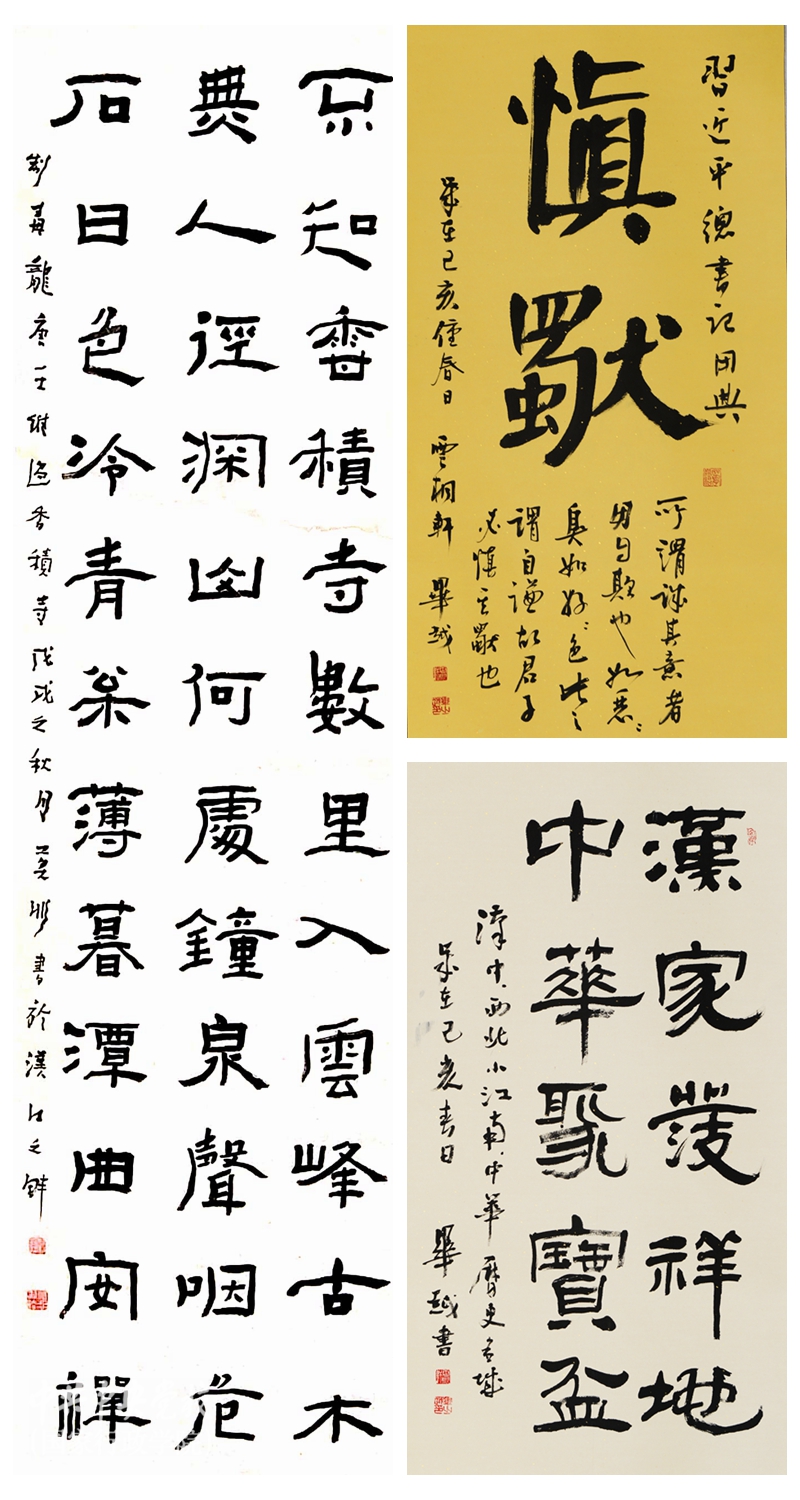 不知香積寺數里入雲峰古木
無人徑深山何處鐘泉聲咽危
石日色冷青松薄暮潭曲安禪
制毒龍唐王維過香積寺戊戌之秋月書於漢江之畔
習近平總書記用典
慎獨
所謂誠其意者
毋自欺也如惡〻
臭如好〻色此之
謂自謙故君子
必慎其獨也
歲在己亥仲春日雲桐軒畢越
漢家發祥地
中華聚寶盆
漢中西北小江南中華歷史名城
歲在己亥春日畢越書